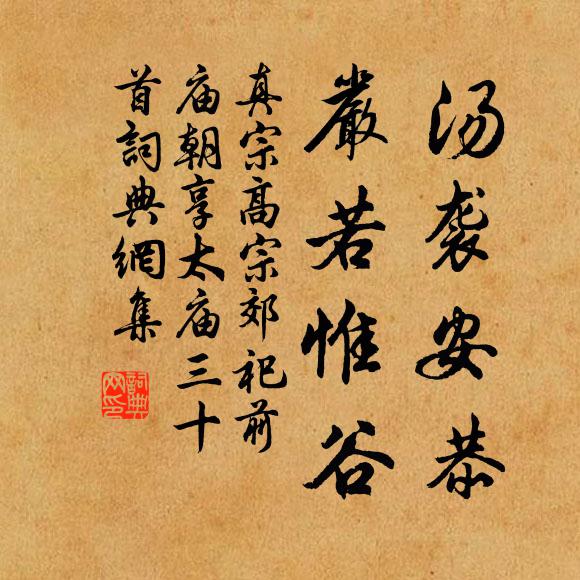 汤袭安恭
嚴若惟谷
真宗高宗郊祀前
庙朝享太庙三十
首詞典網集
詞典
网印